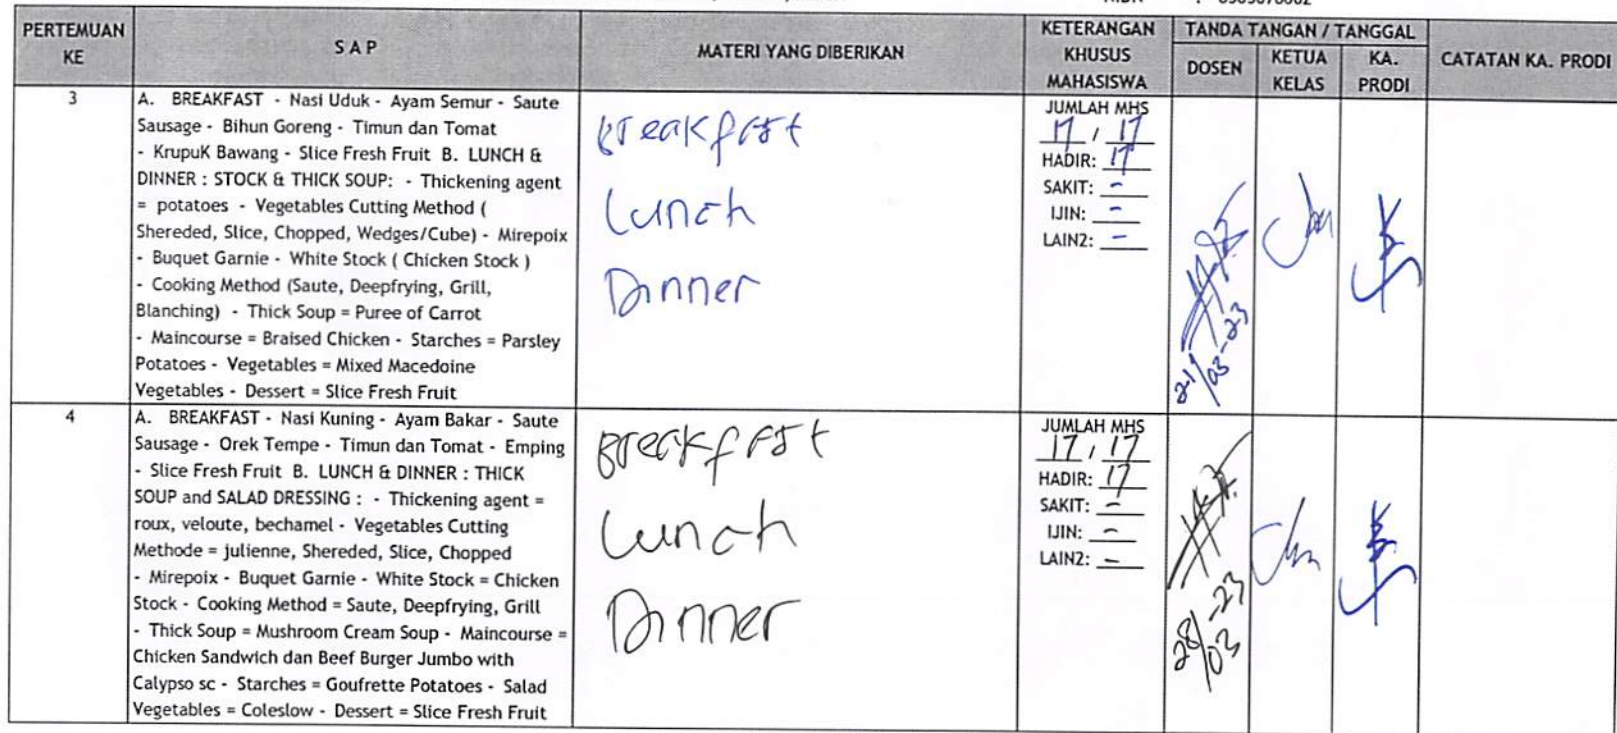 PERTEMUAN KE
S A P
MATERI YANG DIBERIKAN
KETERANGAN KHUSUS MAHASISWA
TANDA TANGAN / TANGGAL
DOSEN
KETUA KELAS
KA. PRODI
CATATAN KA. PRODI
3
A. BREAKFAST - Nasi Uduk - Ayam Semur - Saute
Sausage - Bihun Goreng - Timun dan Tomat
- KrupuK Bawang - Slice Fresh Fruit B. LUNCH &
DINNER : STOCK & THICK SOUP: - Thickening agent
= potatoes - Vegetables Cutting Method (
Shereded, Slice, Chopped, Wedges/Cube) - Mirepoix
- Buquet Garnie - White Stock ( Chicken Stock )
- Cooking Method (Saute, Deepfrying, Grill,
Blanching) - Thick Soup = Puree of Carrot
- Maincourse = Braised Chicken - Starches = Parsley
Potatoes - Vegetables = Mixed Macedoine
Vegetables - Dessert = Slice Fresh Fruit
Breakfast
Lunch
Dinner
JUMLAH MHS
17 / 17
HADIR: 17
SAKIT: -
IJIN: -
LAIN2: -
21/03-23
4
A. BREAKFAST - Nasi Kuning - Ayam Bakar - Saute
Sausage - Orek Tempe - Timun dan Tomat - Emping
- Slice Fresh Fruit B. LUNCH & DINNER : THICK
SOUP and SALAD DRESSING : - Thickening agent =
roux, veloute, bechamel - Vegetables Cutting
Methode = julienne, Shereded, Slice, Chopped
- Mirepoix - Buquet Garnie - White Stock = Chicken
Stock - Cooking Method = Saute, Deepfrying, Grill
- Thick Soup = Mushroom Cream Soup - Maincourse =
Chicken Sandwich dan Beef Burger Jumbo with
Calypso sc - Starches = Goufrette Potatoes - Salad
Vegetables = Coleslow - Dessert = Slice Fresh Fruit
Breakfast
Lunch
Dinner
JUMLAH MHS
17 / 17
HADIR: 17
SAKIT: -
IJIN: -
LAIN2: -
28/03-23